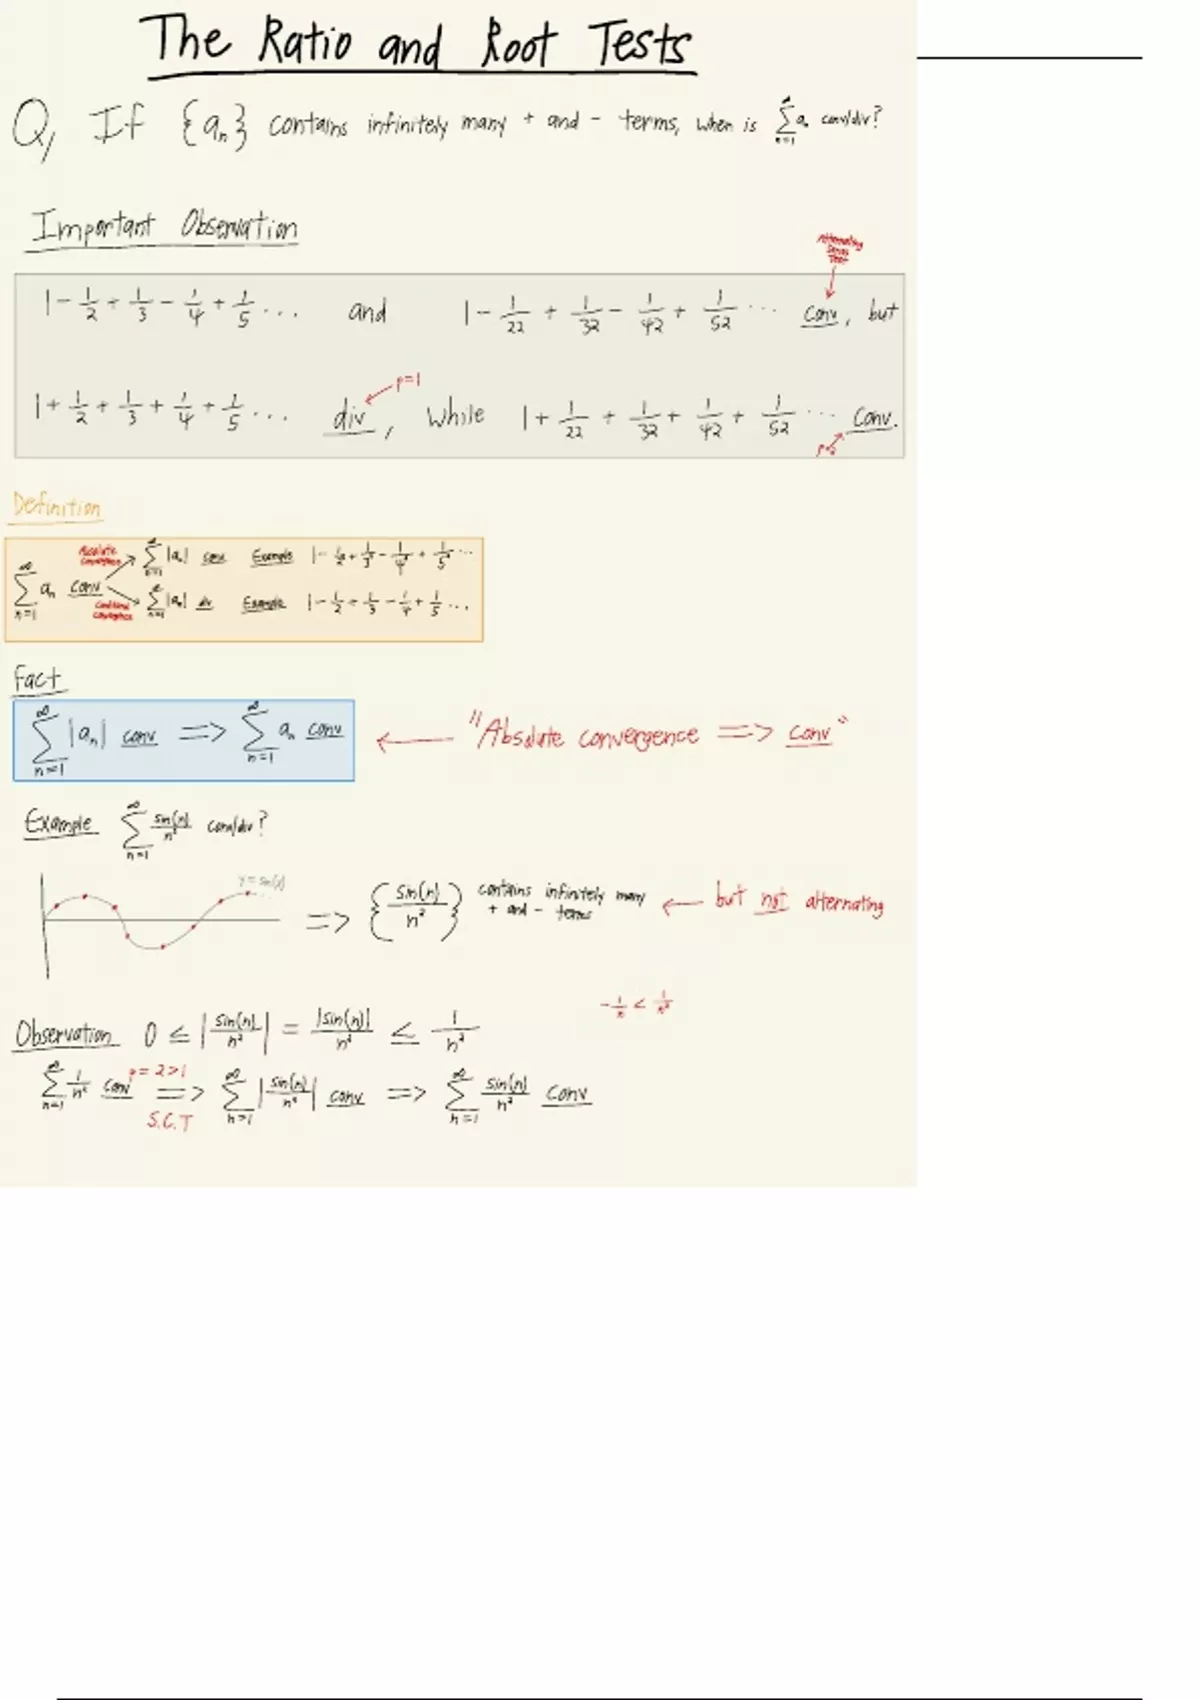 The Ratio and Root Tests
Q, If {aₙ} contains infinitely many + and - terms, when is ∑_{n=1}^∞ aₙ conv/div?
Important Observation
Alternating Series Test
1 - 1/2 + 1/3 - 1/4 + 1/5 ... and 1 - 1/22 + 1/32 - 1/42 + 1/52 ... conv, but
p=1
1 + 1/2 + 1/3 + 1/4 + 1/5 ... div, while 1 + 1/22 + 1/32 + 1/42 + 1/52 ... conv.
p=2
Definition
Absolute convergence ∑_{n=1}^∞ |aₙ| conv Example 1 - 1/2² + 1/3² - 1/4² + 1/5² ...
∑_{n=1}^∞ aₙ conv
Conditional convergence ∑_{n=1}^∞ |aₙ| div Example 1 - 1/2 + 1/3 - 1/4 + 1/5 ...
Fact
∑_{n=1}^∞ |aₙ| conv => ∑_{n=1}^∞ aₙ conv "Absolute convergence => conv"
Example ∑_{n=1}^∞ sin(n)/n² conv/div?
y = sin(x)
=> {sin(n)/n²} contains infinitely many + and - terms but not alternating
-1/n < 1/n²
Observation 0 ≤ |sin(n)/n²| = |sin(n)|/n² ≤ 1/n²
p = 2>1
∑_{n=1}^∞ 1/n² conv => ∑_{n=1}^∞ |sin(n)/n²| conv => ∑_{n=1}^∞ sin(n)/n² conv
S.C.T